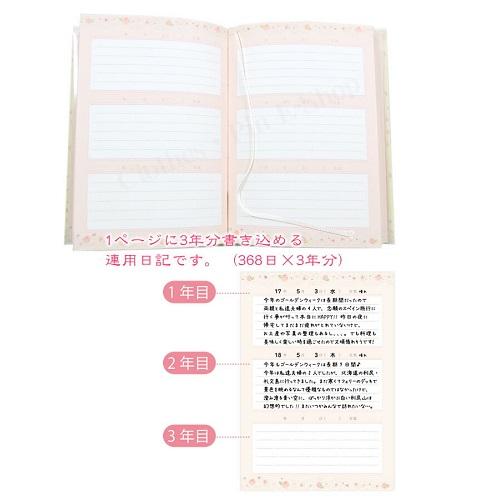 Clothes-Pin E-Shop
1ページに3年分書き込める
連用日記です。 (368日×3年分)
1年目
17 5 3 水 晴れ
今年のゴールデンウィークは長期間だったので
両親と私達夫婦の4人で、念願のスペイン旅行に
行く事が叶って本当にHAPPY!! 昨日の夜に
帰宅してまだまだ疲れがとれていないけど、
お土産や写真の整理もあるし、、、。でも料理も
美味しく楽しい時を過ごせたので又頑張れそうです!
2年目
18 5 3 木 晴れ
今年もゴールデンウィークは長期7日間♪
今年は私達夫婦の2人でしたが、北海道の利尻・
礼文島に行ってきました。まだ寒くてフェリーのデッキで
景色を眺めるなんて優雅なものではなかったけど、
澄み渡る青い空に、ぽっかり浮かぶ白い利尻山は
幻想的でした!!またいつかみんなで訪れたいな〜。
3年目